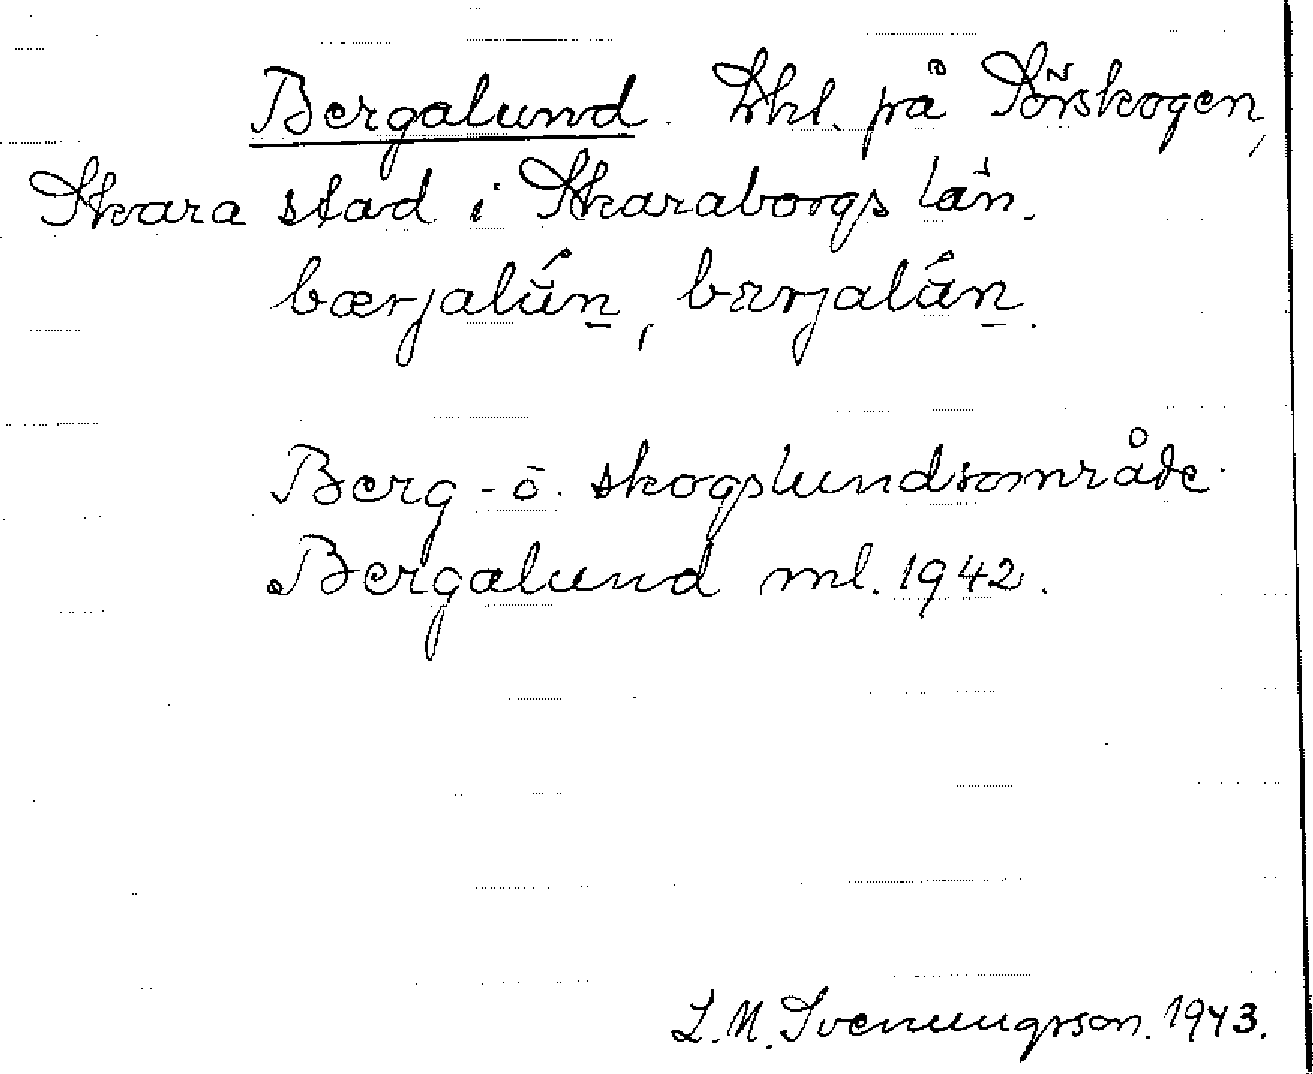 Bergalund. Lkl. på Sörskogen,
Skara stad i Skaraborgs län.
bærjalún̲, bærjalán̲.
Berg- o. skogslundsområde.
Bergalund ml. 1942.
L.M. Svenungsson. 1943.